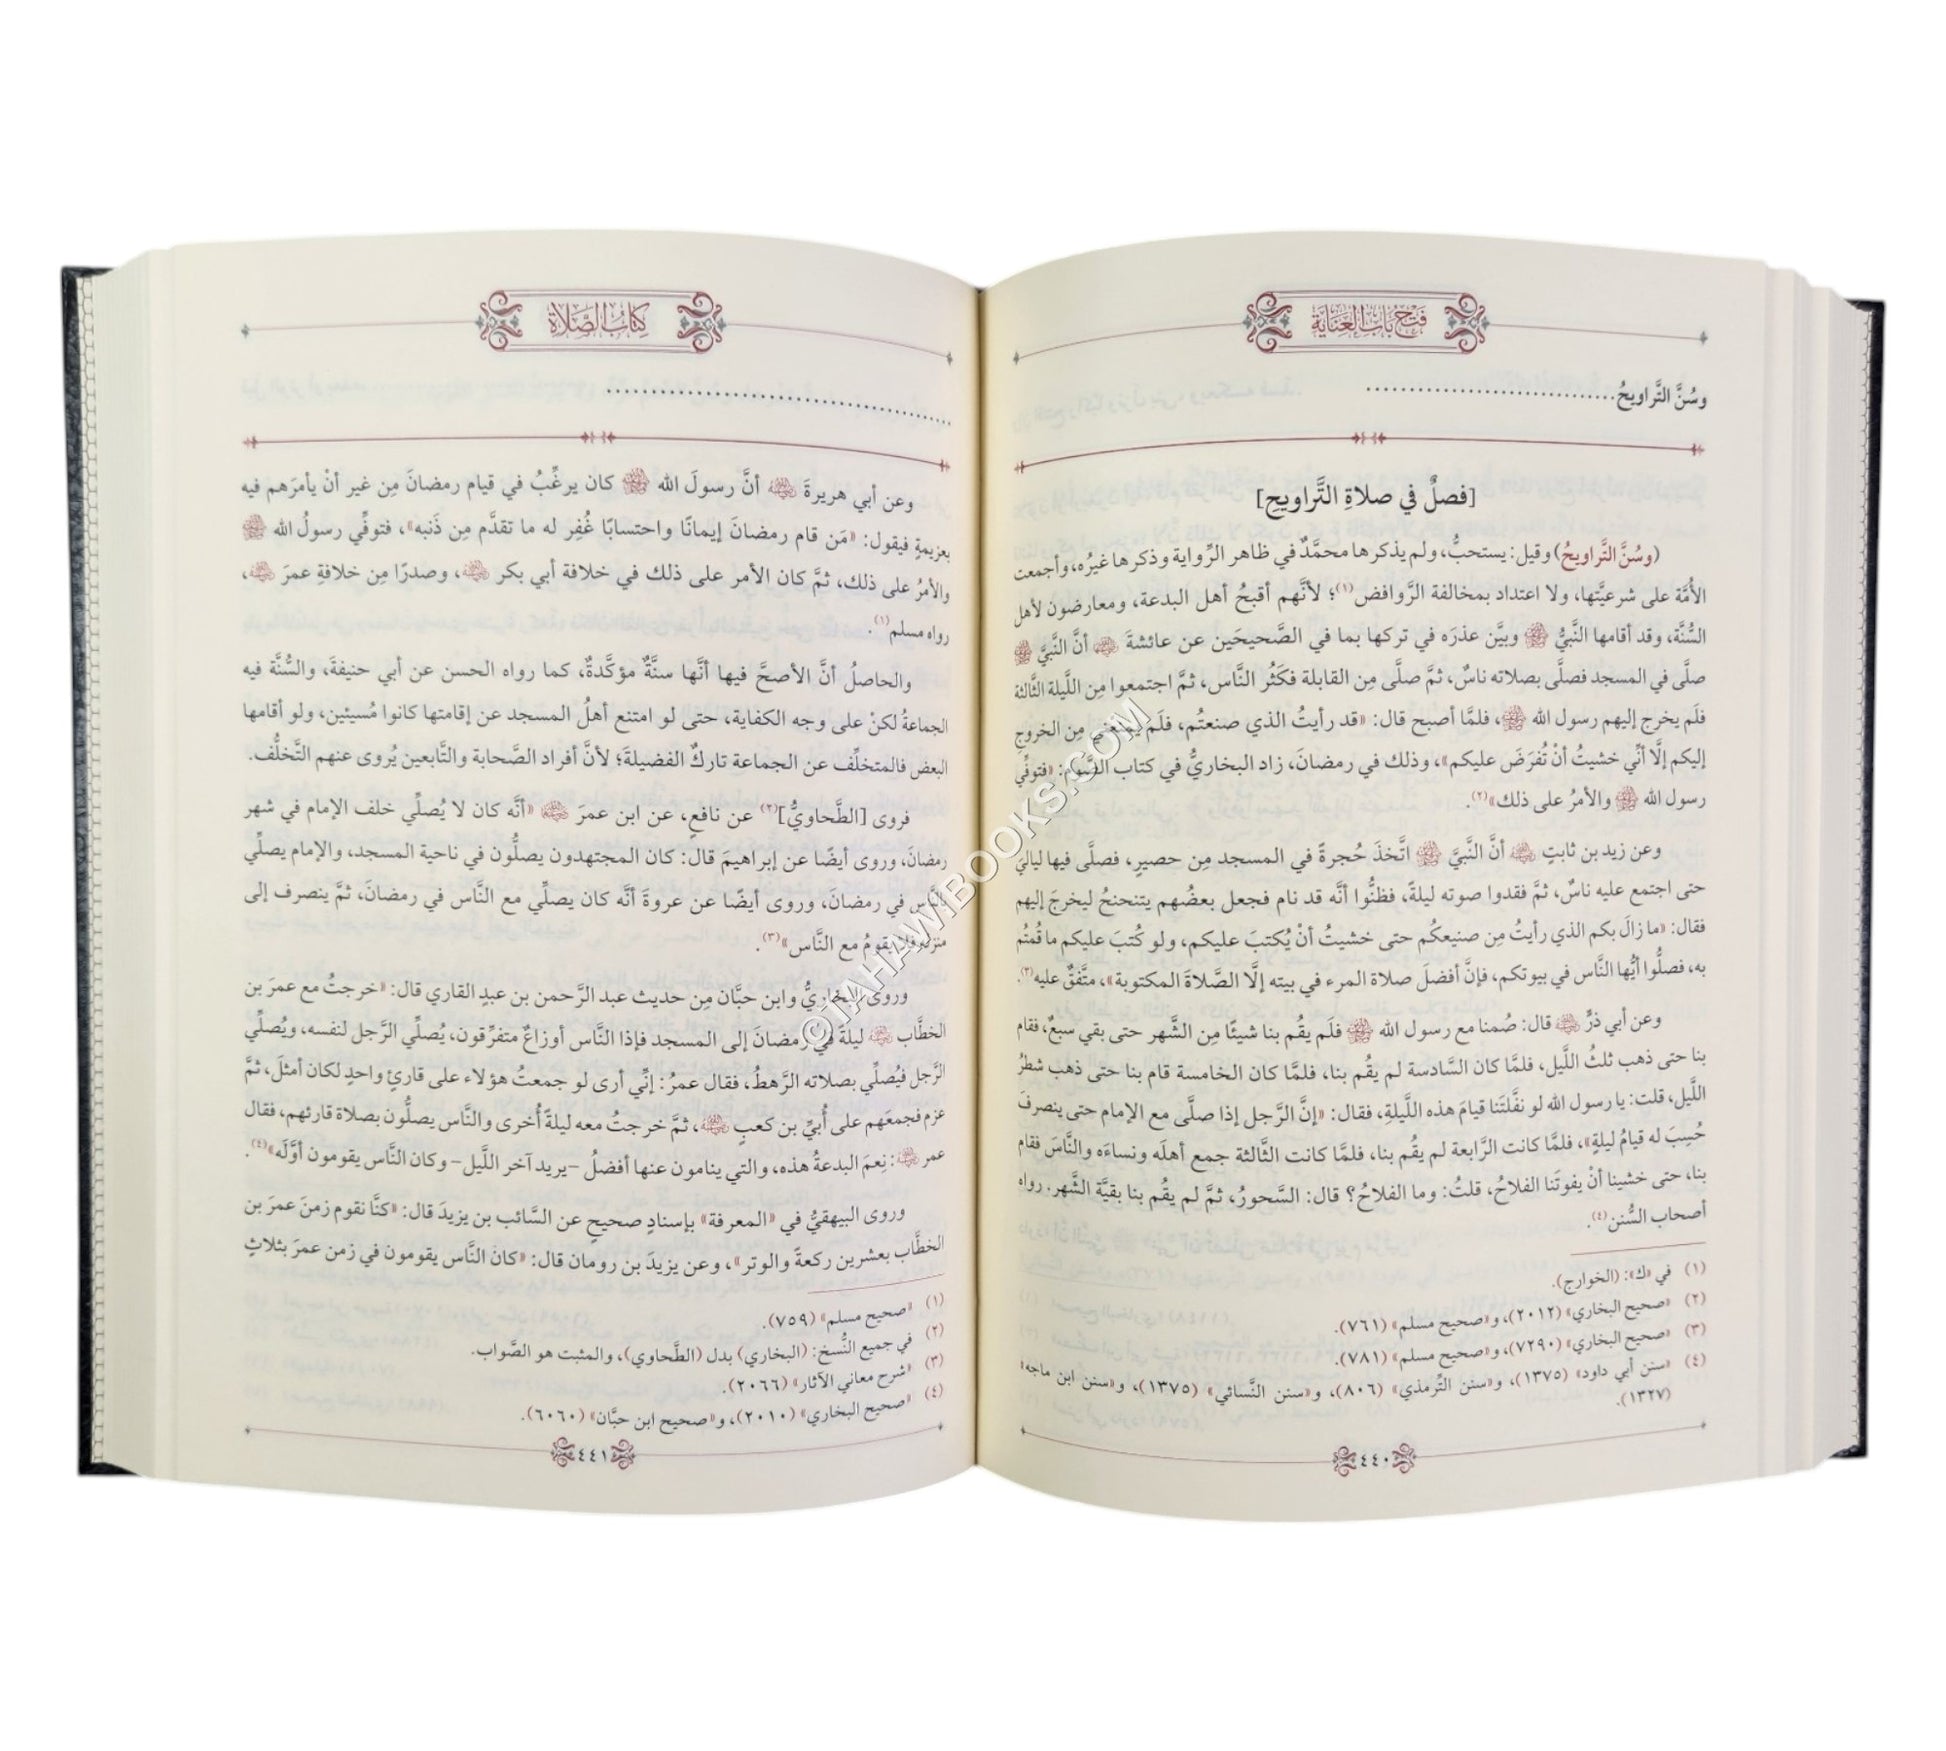 فتح باب العناية
وسُنَّ التَّراويحُ..............................
[فصلٌ في صلاةِ التَّراويحِ]
(وسُنَّ التَّراويحُ) وقيل: يستحبُّ، ولم يذكرها محمَّدٌ في ظاهر الرِّواية وذكرها غيرُه، وأجمعت
الأُمَّة على شرعيَّتها، ولا اعتداد بمخالفة الرَّوافض(١)؛ لأنَّهم أقبحُ أهل البدعة، ومعارضون لأهل
السُّنَّة، وقد أقامها النَّبيُّ ﷺ وبيَّن عذرَه في تركها بما في الصَّحيحَين عن عائشةَ رضي الله عنها أنَّ النَّبيَّ ﷺ
صلَّى في المسجد فصلَّى بصلاته ناسٌ، ثمَّ صلَّى مِن القابلة فكَثُر النَّاس، ثمَّ اجتمعوا مِن اللَّيلة الثَّالثة
فلَم يخرج إليهم رسول الله ﷺ، فلمَّا أصبح قال: «قد رأيتُ الذي صنعتُم، فلَم يمنعني مِن الخروجِ
إليكم إلَّا أنِّي خشيتُ أنْ تُفرَضَ عليكم»، وذلك في رمضانَ، زاد البخاريُّ في كتاب الصَّوم: «فتوفِّي
رسول الله ﷺ والأمرُ على ذلك»(٢).
وعن زيد بن ثابتٍ رضي الله عنه أنَّ النَّبيَّ ﷺ اتَّخذَ حُجرةً في المسجد مِن حصيرٍ، فصلَّى فيها لياليَ
حتى اجتمع عليه ناسٌ، ثمَّ فقدوا صوته ليلةً، فظنُّوا أنَّه قد نام فجعل بعضُهم يتنحنحُ ليخرجَ إليهم
فقال: «ما زالَ بكم الذي رأيتُ مِن صنيعكُم حتى خشيتُ أنْ يُكتبَ عليكم، ولو كُتبَ عليكم ما قُمتُم
به، فصلُّوا أيُّها النَّاس في بيوتكم، فإنَّ أفضلَ صلاة المرء في بيته إلَّا الصَّلاةَ المكتوبة»، متَّفقٌ عليه(٣).
وعن أبي ذرٍّ رضي الله عنه قال: صُمنا مع رسول الله ﷺ فلَم يقُم بنا شيئًا مِن الشَّهر حتى بقي سبعٌ، فقام
بنا حتى ذهب ثلثُ اللَّيل، فلمَّا كان السَّادسة لم يقُم بنا، فلمَّا كان الخامسة قام بنا حتى ذهب شطرُ
اللَّيل، قلت: يا رسول الله لو نفَّلتَنا قيامَ هذه اللَّيلةِ، فقال: «إنَّ الرَّجل إذا صلَّى مع الإمام حتى ينصرفَ
حُسِبَ له قيامُ ليلةٍ»، فلمَّا كانت الرَّابعة لم يقُم بنا، فلمَّا كانت الثَّالثة جمع أهلَه ونساءَه والنَّاسَ فقام
بنا، حتى خشينا أنْ يفوتَنا الفلاحُ، قلتُ: وما الفلاحُ؟ قال: السَّحورُ، ثمَّ لم يقُم بنا بقيَّة الشَّهر. رواه
أصحاب السُّنن(٤).
(١) في «ك»: (الخوارج).
(٢) «صحيح البخاري» (٢٠١٢)، و«صحيح مسلم» (٧٦١).
(٣) «صحيح البخاري» (٧٢٩٠)، و«صحيح مسلم» (٧٨١).
(٤) «سنن أبي داود» (١٣٧٥)، و«سنن التِّرمذي» (٨٠٦)، و«سنن النَّسائي» (١٣٧٥)، و«سنن ابن ماجه»
(١٣٢٧).
٤٤٠
كتاب الصلاة
..............................
وعن أبي هريرةَ رضي الله عنه أنَّ رسولَ الله ﷺ كان يرغِّبُ في قيام رمضانَ مِن غير أنْ يأمرَهم فيه
بعزيمةٍ فيقول: «مَن قام رمضانَ إيمانًا واحتسابًا غُفِر له ما تقدَّم مِن ذَنبه»، فتوفِّي رسولُ الله ﷺ
والأمرُ على ذلك، ثمَّ كان الأمر على ذلك في خلافة أبي بكر رضي الله عنه، وصدرًا مِن خلافةِ عمرَ رضي الله عنه،
رواه مسلم(١).
والحاصلُ أنَّ الأصحَّ فيها أنَّها سنَّةٌ مؤكَّدةٌ، كما رواه الحسن عن أبي حنيفةَ، والسُّنَّة فيه
الجماعةُ لكنْ على وجه الكفاية، حتى لو امتنع أهلُ المسجد عن إقامتها كانوا مُسيئين، ولو أقامها
البعض فالمتخلِّف عن الجماعة تاركٌ الفضيلةَ؛ لأنَّ أفراد الصَّحابة والتَّابعين يُروى عنهم التَّخلُّف.
فروى [الطَّحاويُّ](٢) عن نافعٍ، عن ابن عمرَ رضي الله عنهما «أنَّه كان لا يُصلِّي خلف الإمام في شهر
رمضانَ، وروى أيضًا عن إبراهيمَ قال: كان المجتهدون يصلُّون في ناحية المسجد، والإمام يصلِّي
بالنَّاس في رمضانَ، وروى أيضًا عن عروةَ أنَّه كان يصلِّي مع النَّاس في رمضانَ، ثمَّ ينصرف إلى
منزله فلا يقومُ مع النَّاس»(٣).
وروى البخاريُّ وابن حبَّان مِن حديث عبد الرَّحمن بن عبدٍ القاري قال: «خرجتُ مع عمرَ بن
الخطَّاب رضي الله عنه ليلةً في رمضانَ إلى المسجد فإذا النَّاس أوزاعٌ متفرِّقون، يُصلِّي الرَّجل لنفسه، ويُصلِّي
الرَّجل فيُصلِّي بصلاته الرَّهطُ، فقال عمرُ: إنِّي أرى لو جمعتُ هؤلاء على قارئٍ واحدٍ لكان أمثلَ، ثمَّ
عزم فجمعَهم على أُبيِّ بن كعبٍ رضي الله عنه، ثمَّ خرجتُ معه ليلةً أُخرى والنَّاس يصلُّون بصلاة قارئهم، فقال
عمر رضي الله عنه: نِعمَ البدعةُ هذه، والتي ينامون عنها أفضلُ –يريد آخر اللَّيل– وكان النَّاس يقومون أوَّلَه»(٤).
وروى البيهقيُّ في «المعرفة» بإسنادٍ صحيحٍ عن السَّائب بن يزيدَ قال: «كنَّا نقوم زمنَ عمرَ بن
الخطَّاب بعشرين ركعةً والوتر»، وعن يزيدَ بن رومان قال: «كان النَّاس يقومون في زمن عمرَ بثلاثٍ
(١) «صحيح مسلم» (٧٥٩).
(٢) في جميع النُّسخ: (البخاري) بدل (الطَّحاوي)، والمثبت هو الصَّواب.
(٣) «شرح معاني الآثار» (٢٠٦٦).
(٤) «صحيح البخاري» (٢٠١٠)، و«صحيح ابن حبَّان» (٦٠٦٠).
٤٤١
©TAHAWIBOOKS.COM